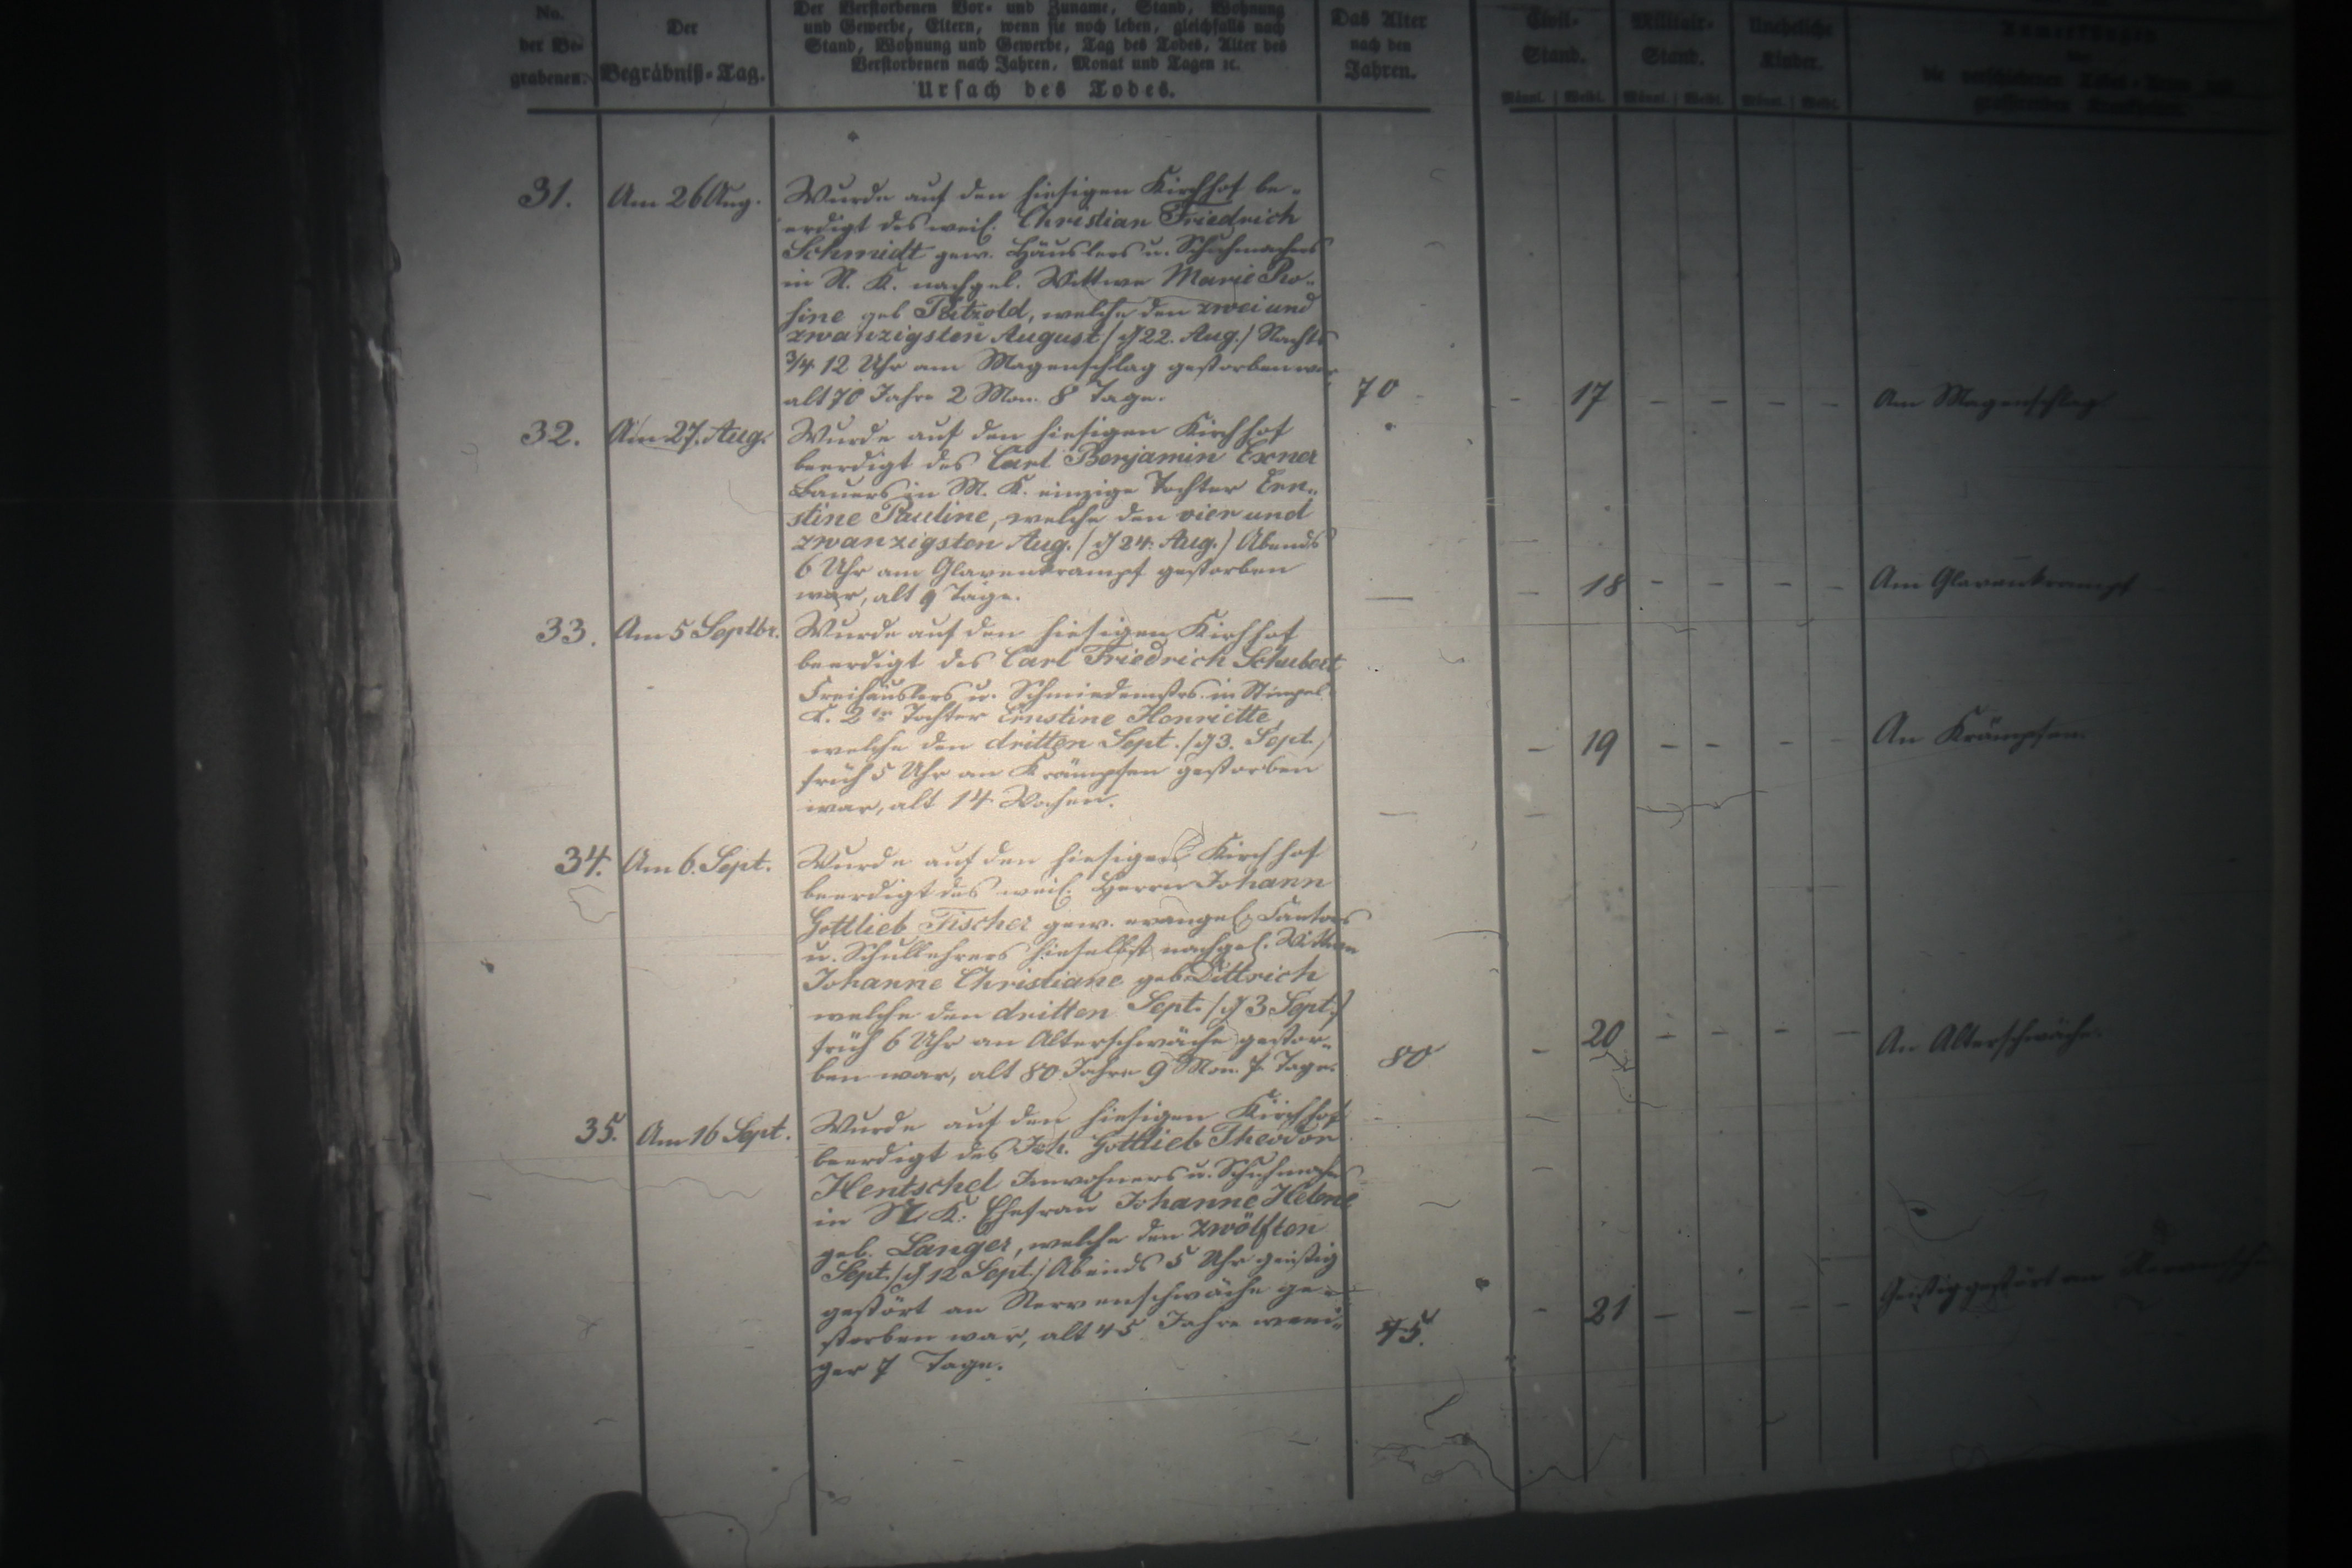 No.
der Be-
grabenen.
Der
Begräbniß-Tag.
Der Verstorbenen Vor- und Zuname, Stand, Wohnung
und Gewerbe, Eltern, wenn sie noch leben, gleichfalls nach
Stand, Wohnung und Gewerbe, Tag des Todes, Alter des
Verstorbenen nach Jahren, Monat und Tagen ꝛc.
Ursach des Todes.
Das Alter
nach den
Jahren.
Civil-
Stand.
Männl. | Weibl.
Militair-
Stand.
Männl. | Weibl.
Uneheliche
Kinder.
Männl. | Weibl.
Anmerkungen
die verschiedenen Todes-Arten und
grassirenden Krankheiten.
31. Am 26 Aug. Wurde auf den hiesigen Kirchhof be-
erdigt des weil. Christian Friedrich
Schmidt gew. Häuslers u. Schuhmachers
in N. K. nachgel. Wittwe Marie Ro-
sine geb Pätzold, welche den zwei und
zwanzigsten August /d 22. Aug./ Nachts
3/4 12 Uhr am Magenschlag gestorben war
alt 70 Jahre 2 Mon. 8 Tage. 70 - 17 - - - - Am Magenschlag
32. Am 27. Aug. Wurde auf den hiesigen Kirchhof
beerdigt des Carl Benjamin Exner
Bauers in M. K. einzige Tochter Ern-
stine Pauline, welche den vier und
zwanzigsten Aug. /d 24. Aug./ Abends
6 Uhr am krampf gestorben
war, alt 9 Tage. — - 18 - - - - Am krampf
33. Am 5 Septbr. Wurde auf den hiesigen Kirchhof
beerdigt des Carl Friedrich Schubert
Freihäuslers u. Schmiedemstrs. in
K. 2te Tochter Ernstine Henriette,
welche den dritten Sept. /d 3. Sept./
früh 5 Uhr an Krämpfen gestorben - 19 - - - - An Krämpfen
war, alt 14 Wochen. —
34. Am 6. Sept. Wurde auf den hiesigen Kirchhof
beerdigt des weil. Herrn Johann
Gottlieb Fischer gew. evangel. Cantors
u. Schullehrers hieselbst nachgel. Wittwe
Johanne Christiane geb. Dittrich
welche den dritten Sept. /d 3 Sept./
früh 6 Uhr an Alterschwäche gestor-
ben war, alt 80 Jahre 9 Mon. 7 Tage. 80 - 20 - - - - An Alterschwäche
35. Am 16 Sept. Wurde auf den hiesigen Kirchhof
beerdigt des Joh. Gottlieb Theodor
Hentschel Inwohners u. Schuhmachers
in K. Ehefrau Johanne Helene
geb. Langer, welche den zwölften
Sept. /d 12 Sept./ Abends 5 Uhr geistig
gestört an Nervenschwäche ge-
storben war, alt 45 Jahre weni- 45. - 21 - - - - Geistig gestört an
ger 7 Tage.